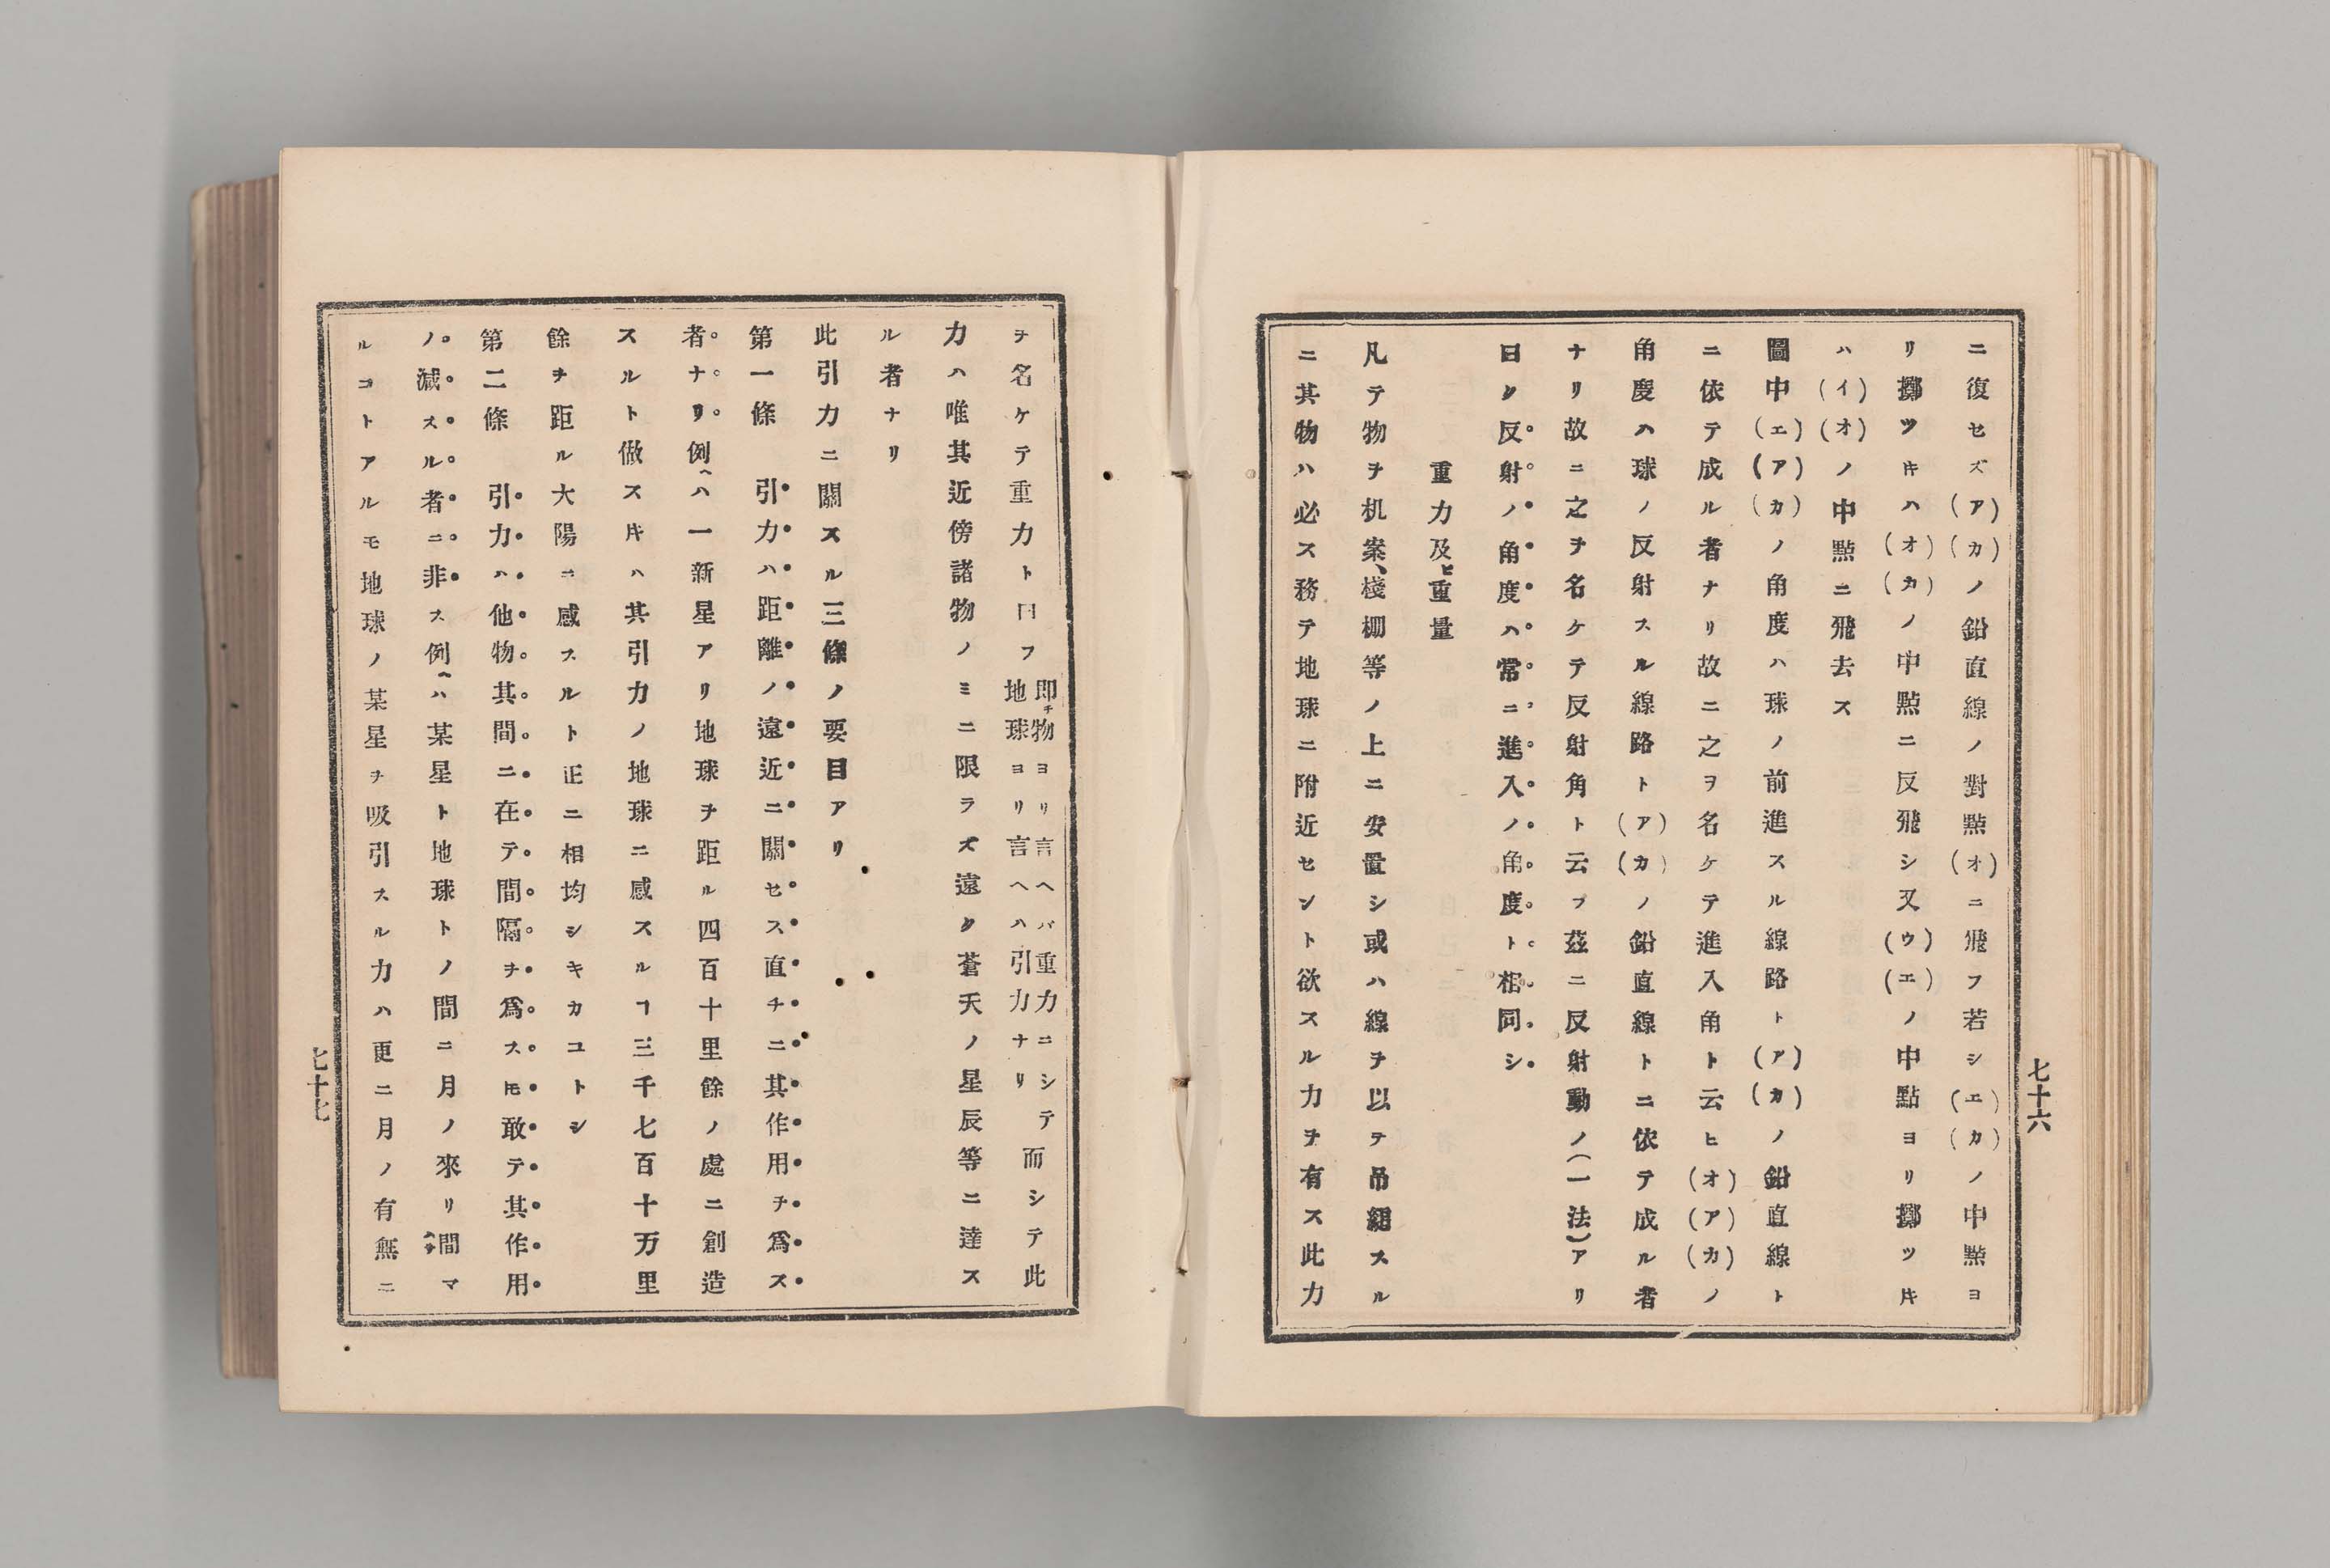 ニ復セズ(ア)(カ)ノ鉛直線ノ對點(オ)ニ飛フ若シ(エ)(カ)ノ中點ヨ
リ擲ツキハ(オ)(カ)ノ中點ニ反飛シ又(ウ)(エ)ノ中點ヨリ擲ツキ
ハ(イ)(オ)ノ中點ニ飛去ス
圖中(エ)(ア)(カ)ノ角度ハ球ノ前進スル線路ト(ア)(カ)ノ鉛直線ト
ニ依テ成ル者ナリ故ニ之ヲ名ケテ進入角ト云ヒ(オ)(ア)(カ)ノ
角度ハ球ノ反射スル線路ト(ア)(カ)ノ鉛直線トニ依テ成ル者
ナリ故ニ之ヲ名ケテ反射角ト云フ茲ニ反射動ノ(一法)アリ
曰ク反射ノ角度ハ常ニ進入ノ角度ト相同シ
重力及ヒ重量
凡テ物ヲ机案、棧棚等ノ上ニ安置シ或ハ線ヲ以テ吊繩スル
ニ其物ハ必ス務テ地球ニ附近セント欲スル力ヲ有ス此力
七十六
ヲ名ケテ重力ト曰フ即チ物ヨリ言ヘバ重力ニシテ地球ヨリ言ヘハ引力ナリ而シテ此
力ハ唯其近傍諸物ノミニ限ラズ遠ク蒼天ノ星辰等ニ達ス
ル者ナリ
此引力ニ關スル三條ノ要目アリ
第一條 引力ハ距離ノ遠近ニ關セス直チニ其作用ヲ爲ス
者ナリ例ヘハ一新星アリ地球ヲ距ル四百十里餘ノ處ニ創造
スルト倣スキハ其引力ノ地球ニ感スルヿ三千七百十万里
餘ヲ距ル大陽ニ感スルト正ニ相均シキカコトシ
第二條 引力ハ他物其間ニ在テ間隔ヲ爲スモ敢テ其作用
ノ減スル者ニ非ス例ヘハ某星ト地球トノ間ニ月ノ來リ間マ
ルコトアルモ地球ノ某星ヲ吸引スル力ハ更ニ月ノ有無ニ
七十七